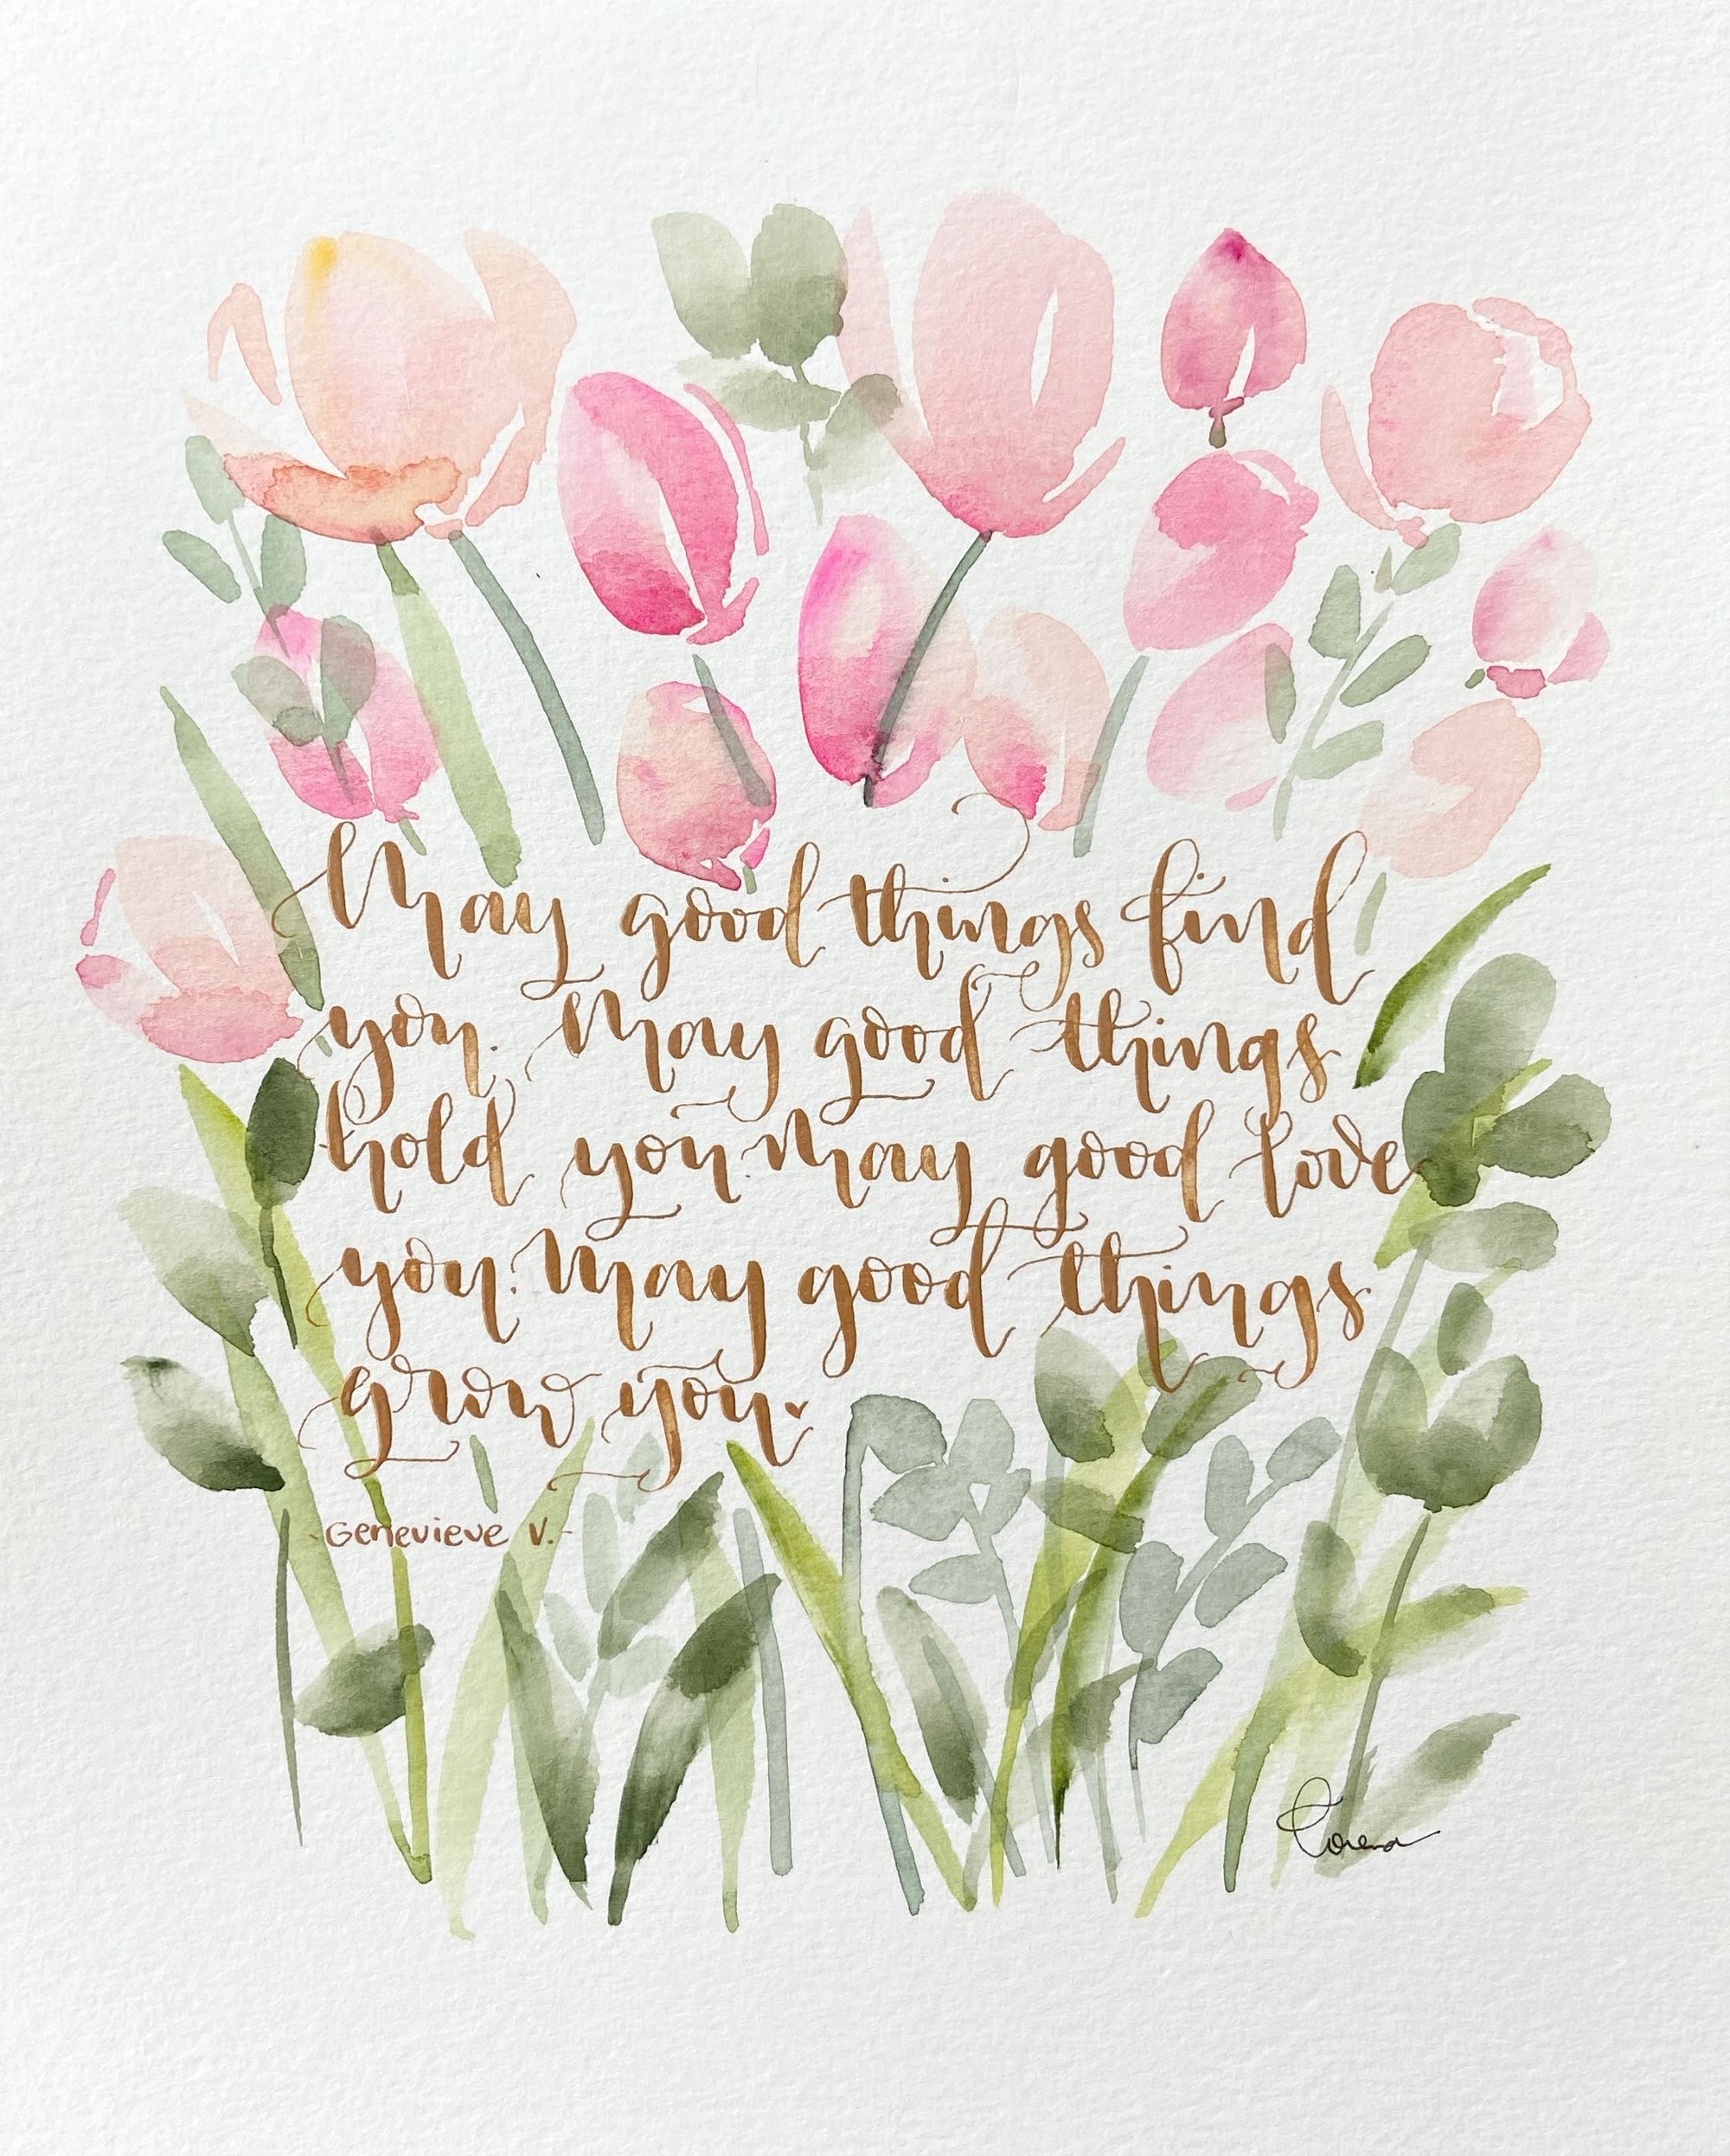 May good things find
you. May good things
hold you. May good love
you. May good things
grow you.
-Genevieve V.-
Lorena